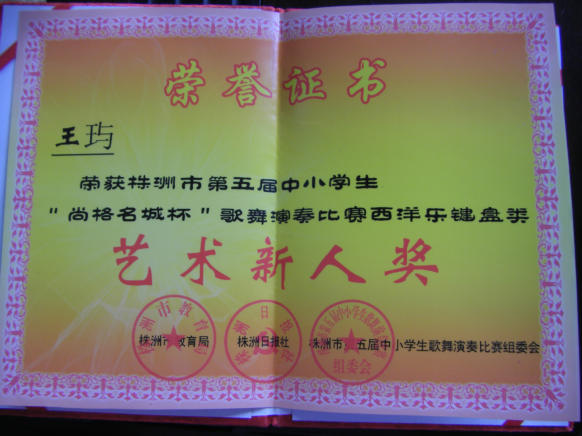 荣誉证书
王玙
荣获株洲市第五届中小学生
"尚格名城杯"歌舞演奏比赛西洋乐键盘类
艺术新人奖
株洲市教育局 株洲日报社 株洲市第五届中小学生歌舞演奏比赛组委会
株洲市教育局
株洲日报社
组委会